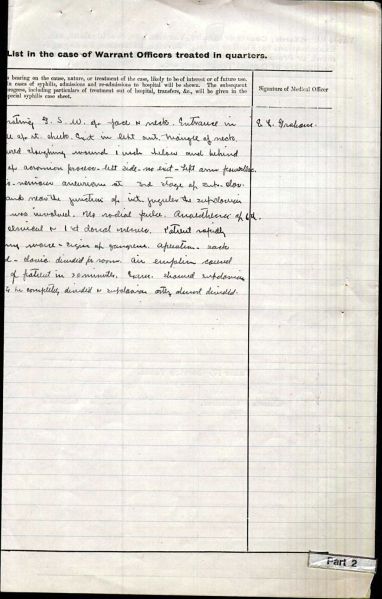 List in the case of Warrant Officers treated in quarters.
s bearing on the cause, nature, or treatment of the case, likely to be of interest or of future use.
In cases of syphilis, admissions and re-admissions to hospital will be shown. The subsequent
progress, including particulars of treatment out of hospital, transfers, &c., will be given in the
special syphilis case sheet.
Signature of Medical Officer
G. S. W. of face & neck. Entrance in
cheek. Exit in left ant. triangle of neck.
sloughing wound 1 inch below and behind
of acromion process left side. no exit - Left arm powerless.
aneurism at 3rd stage of sub. clav.
and near the junction of int. jugular the subclavian
was involved. No radial pulse. Anaesthesia of
& 1st dorsal nerves. Patient rapidly
worse - signs of gangrene. Operation. sack
divided for room. Air embolism caused
of patient in 20 minutes. Exam. showed subclavian
to be completely divided & subclavian artery almost divided.
Part 2